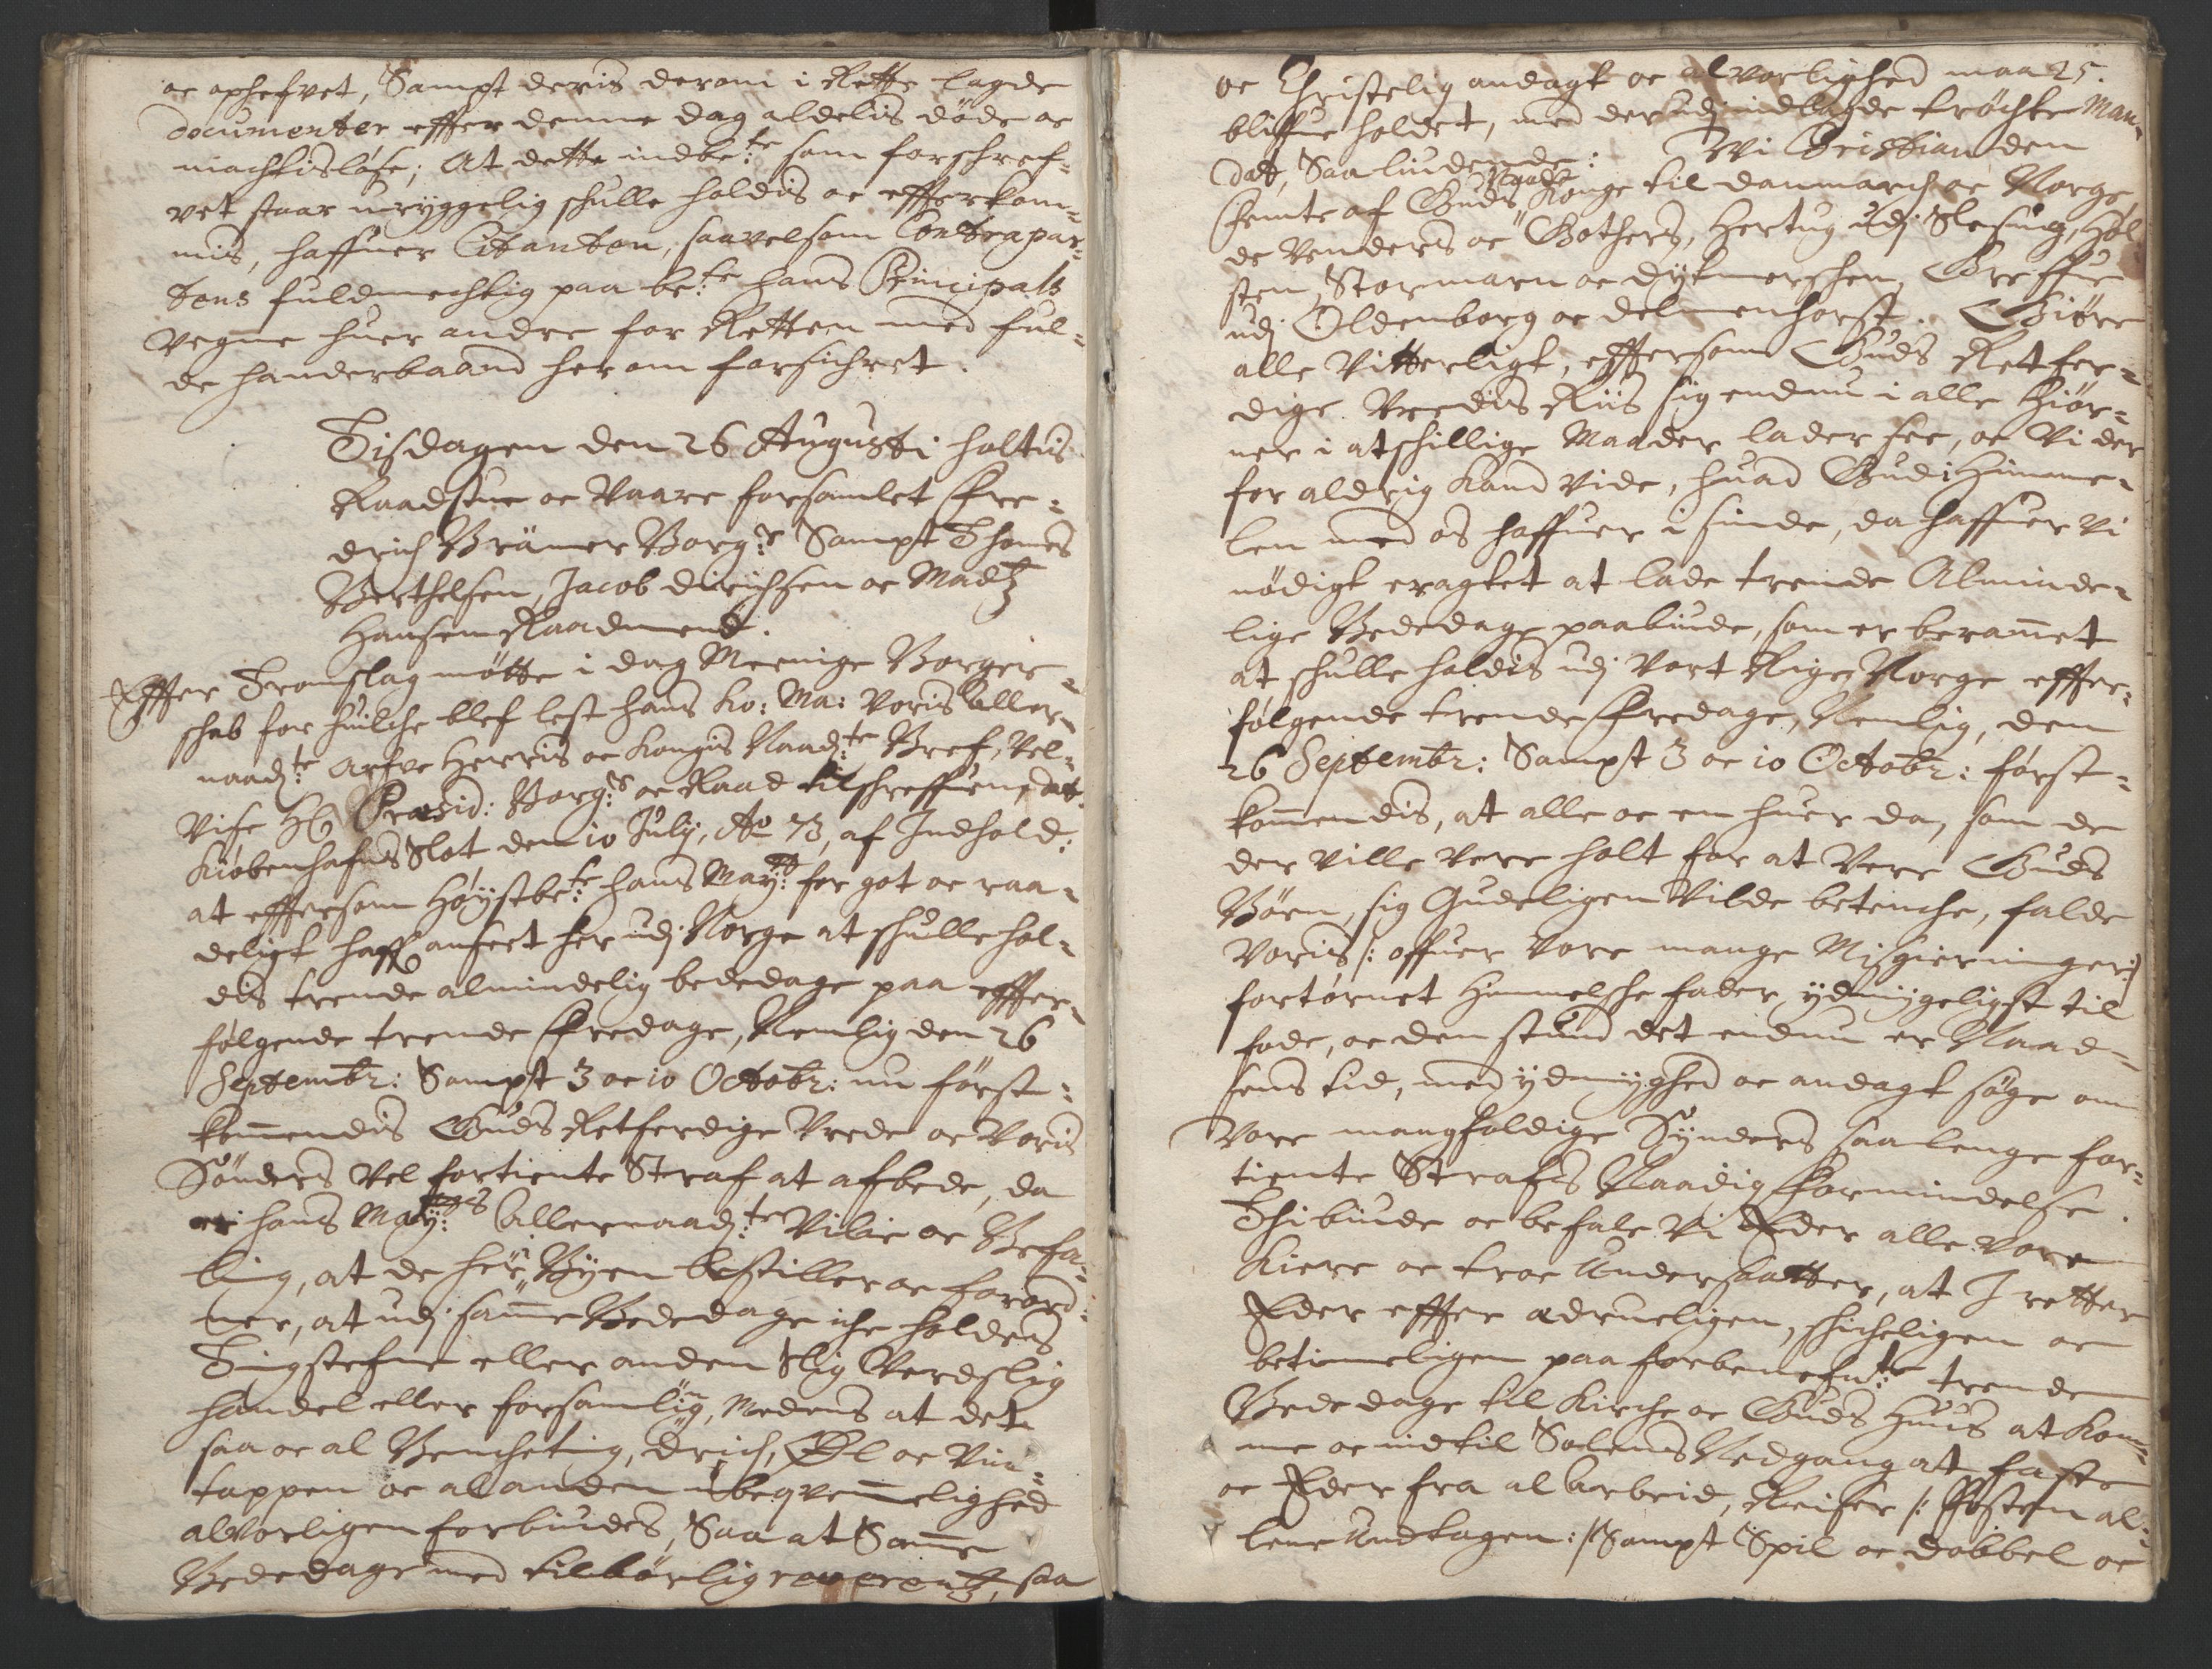 oc ophefvet, Sampt deris derom i Rette lagde
documenter effter denne dag aldelis døde oc
machtisløse; At dette indbe:te som forschref-
vet staar uryggelig schulle holdis oc effterkom-
mis, haffuer Citanten, saavelsom Contrapar-
tens fuldmechtig paa be:te hans Principals
Vegne huer andre for Retten med ful-
de handerbaand herom forsichret.
Tisdagen den 26 Augusti holtis
Raadstue oc Vaare forsamlet Fre-
drich Brämer Borg:r Sampt Thomes
Berthelsen, Jacob Dirichsen oc Madtz
Hansen Raadmend.
Effter Tromslag møtte i dag Meenige Borger-
schab for huilche blef lest hans Ko: Ma: Voris Aller-
naad:te Arfve Herris oc Kongis Naad:te Bref, Vel-
vise H. Præsid: Borg:r oc Raad tilschreffuen, dat:
Kiøbenhafns Slot den 10 July, Ao 73, af Indhold:
at effтersom Høystbe:te hans May:tt for got oc raa-
deligt haffr anseet her udj Norge at schulle hol-
dis trende almindelig bededage paa effter-
følgende trende Fredage, Nemlig den 26
Septembr: Sampt 3 oc 10 Octobr: nu først-
kommendis Guds Retferdige Vrede oc Voris
Sønders Vel fortiente Straf at afbede, da
er hans May:tts Allernaad:te Vilie oc Befa-
ling, at de her i Byen bestiller oc forord-
ner, at udj samme Bededage iche holdes
Tingstefne eller anden slig Verdslig
handel eller forsamling, Medens at det
saa oc al Bencheting, Drich, Øl oc Vin-
tappen oc al anden ubeqvemmelighed
alvorligen forbiudes, Saa at Samme
Bededage med tilbørlig reverentz, saa
oc Christelig andagt oc alvorlighed maa 25.
bliffue holdet, med derudj indlagde tröchte Man-
dat, Saa liudende: Vi Christian den
Femte af Guds Naade Konge til Danmarch oc Norge
de Venders oc Gothers, Hertug udj Slesuig, Hol
sten, Stormarn oc Dytmerschen, Greffue
udj Oldenborg oc Delmenhorst. Giøre
alle Vitterligt, effтersom Guds Retfer-
dige Vredis Riis sig endnu i alle Hiør-
ner i atschillige Maader lader see, oc Vi der
for aldrig Kand Vide, huad Gud i Himme-
len med os haffuer i sinde, da haffuer Vi
nödigt eragtet at lade trende Alminde-
lige Bededage paabiude, som er berammet
at schulle holdis udj Vort Rige Norge effter-
følgende trende Fredage, Nemlig, den
26 Septembr: Sampt 3 oc 10 Octobr: først-
kommendis, at alle oc en huer da, som de
der ville vere holt for at Vere Guds
Børn, sig Gudeligen Vilde betenche, falde
Voris /: offuer Vore mange Misgierninger :/
fortørnet Himmelsche fader ydmygeligst til
fode, oc den stund det endnu er Naad-
sens tid, med ydmyghed oc andagt søge om
Vore mangfoldige Synders saa lenge for-
tiente Strafis Naadig Formindelse.
Thi biude oc befale Vi Eder alle Vore
Kiere oc troe Undersaatter, at I retter
Eder effter ædrueligen, schicheligen oc
betimeligen paa forbenefn:te trende
Bededage til Kirche oc Guds Huus at Kom-
me oc indtil Solens Nedgang at faste
oc Eder fra al Arbeid, Reiser /: Posten al-
lene Undtagen :/ Sampt Spil oc Dobbel oc